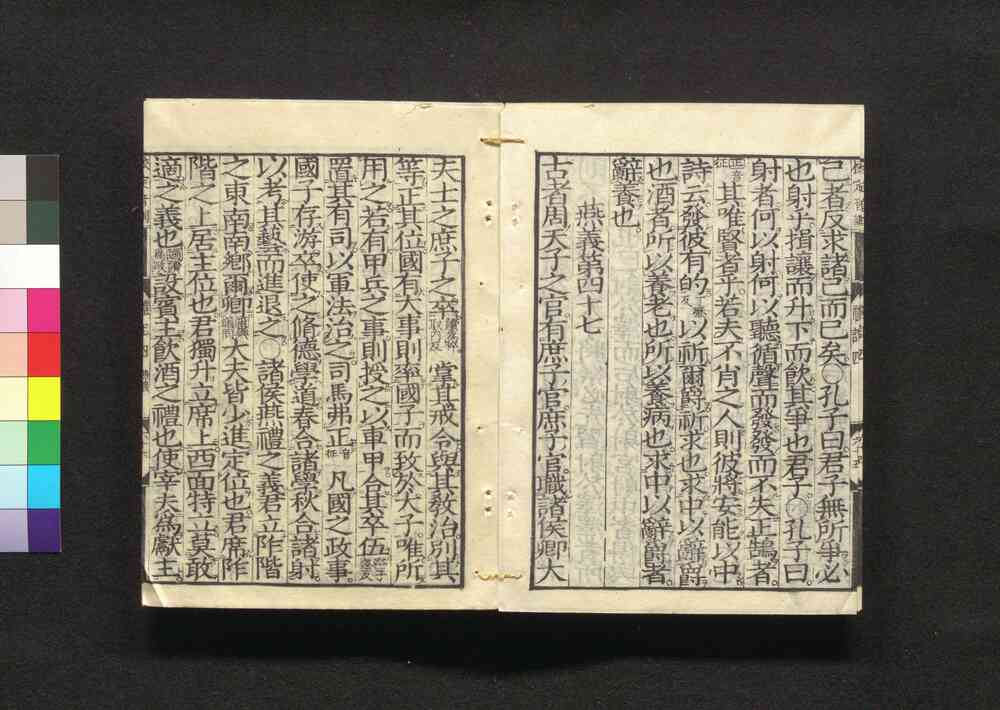 己者反求諸己而已矣○孔子曰君子無所爭必
也射乎揖讓而升下而飲其爭也君子○孔子曰
射者何以射何以聽循聲而發發而不失正鵠者
其唯賢者乎若夫不肖之人則彼將安能以中
詩云發彼有的以祈爾爵祈求也求中以辭爵
也酒者所以養老也所以養病也求中以辭爵者
辭養也
燕義第四十七
古者周天子之官有庶子官庶子官職諸侯卿大
夫士之庶子之卒掌其戒令與其敎治別其
等正其位國有大事則率國子而致於大子唯所
用之若有甲兵之事則授之以車甲合其卒伍
置其有司以軍法治之司馬弗正凡國之政事
國子存游卒使之脩德學道春合諸學秋合諸射
以考其藝而進退之○諸侯燕禮之義君立阼階
之東南南鄕爾卿大夫皆少進定位也君席阼
階之上居主位也君獨升立席上西面特立莫敢
適之義也設賓主飮酒之禮也使宰夫爲獻主